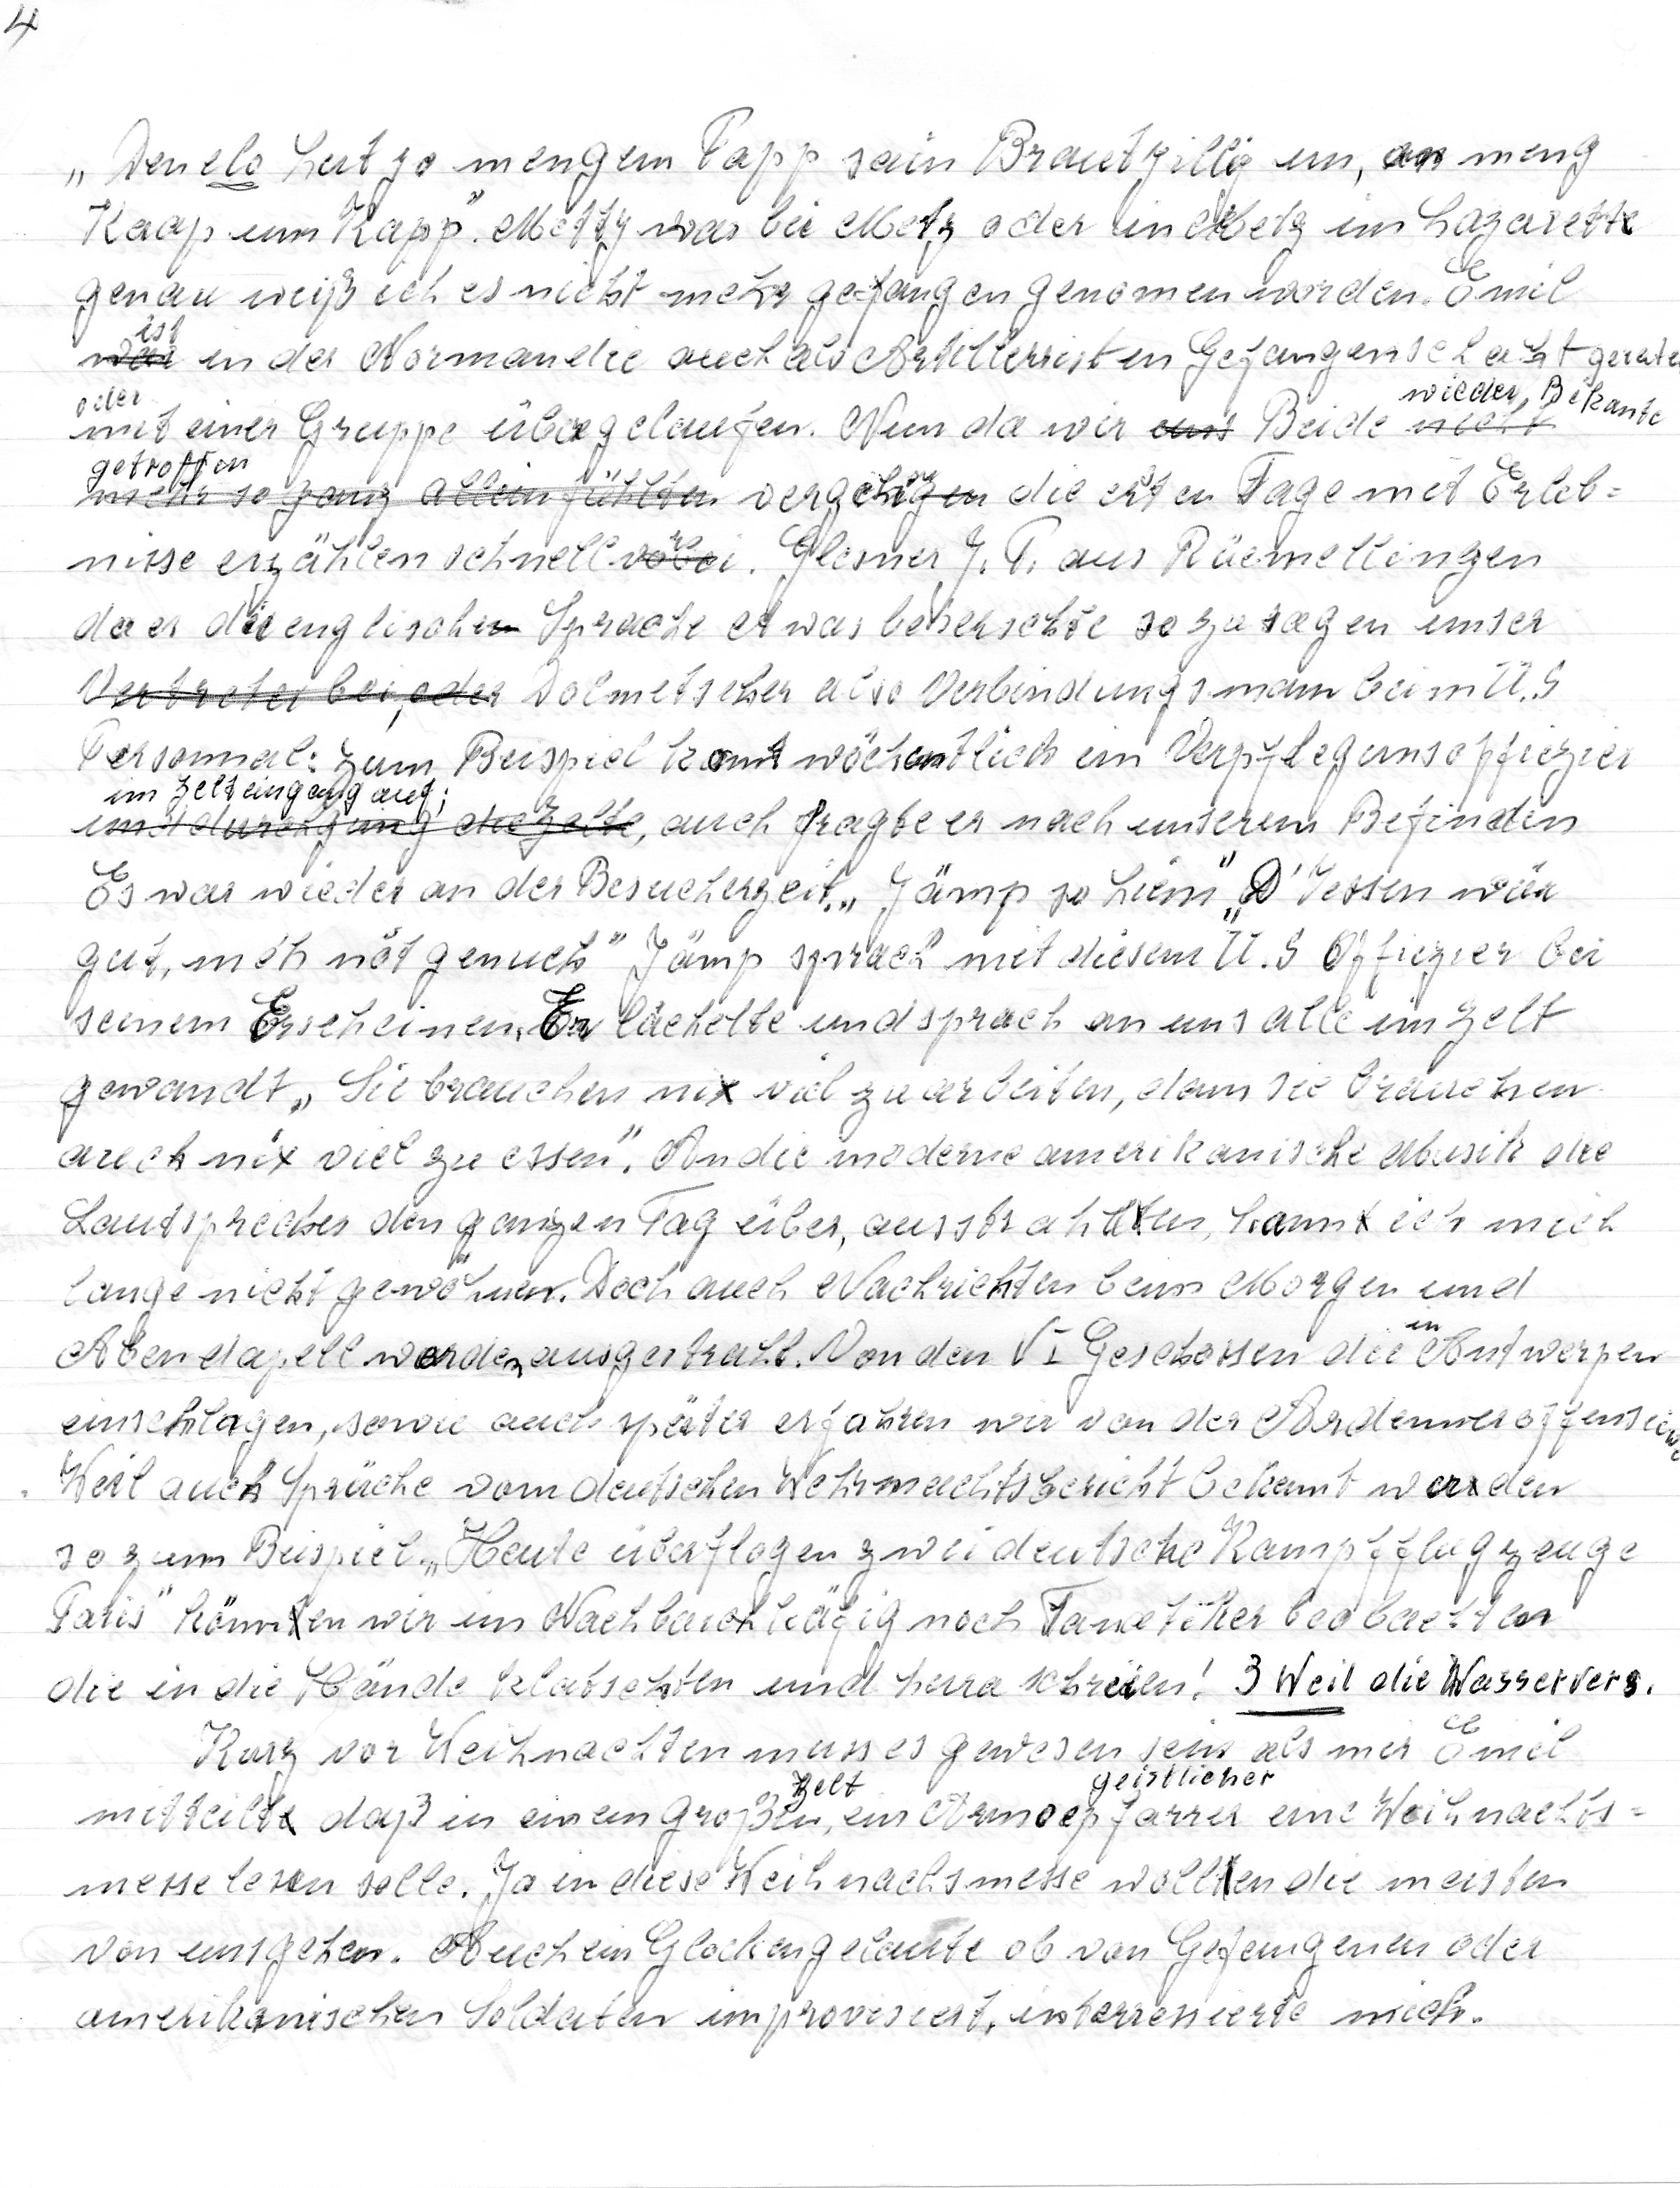 4
„Den elo huet jo mengem Papp sein Brautgilly un, an meng
Kaap um Kapp". Metty war bei Metz oder in Metz im Lazarette
genau weiß ich es nicht mehr gefangen genomen worden. Emil
ist
war in der Normandie auch als Artillerist in Gefangenschaft geraten
oder wieder, Bekante
mit einer Gruppe übergelaufen. Nun da wir uns Beide nicht
getroffen
mehr so ganz allein fühlten vergehen die ersten Tage mit Erleb=
nisse erzählen schnell vorbei. Glesner J. P. aus Rüemellingen
da er die englischen Sprache etwas beherschte sozusagen unser
Vertreter bei, oder Dolmetscher also Verbindungsmann beim U.S
Personnal: Zum Beispiel kamt wöchentlich ein Verpflegunsoffiezier
im Zelteingang auf;
und durchging die Zelte, auch fragte er nach unserem Befinden
Es war wieder an der Besucherzeit. „Jämp so him" „D'Iessen wär
gut, meh nöt genuch" Jämp sprach mit diesem U.S Offiezier bei
seinem Erscheinen. Er lächelte und sprach an uns alle im Zelt
gewandt „Sie brauchen nix viel zu arbeiten, dann sie brauchen
auch nix viel zu essen". An die moderne amerikanische Musik die
Lautsprecher den ganzen Tag über, ausstrahlten, kannt ich mich
lange nicht gewöhnen. Doch auch Nachrichten beim Morgen und
Abendapell werden ausgestrahlt. Von den V1 Geschossen die in Antwerpen
einschlagen, sowie auch später erfahren wir von der Ardennenoffensieve
Weil auch Sprüche vom deutschen Wehrmachtsbericht bekannt werden
so zum Beispiel „Heute überflogen zwei deutsche Kampfflugzeuge
Paris" können wir im Nachbarkäfig noch Fanetiker beobachten
die in die Hände klatschten und hurra schreien! 3 Weil die Wasservers.
Kurz vor Weihnachten muss es gewesen sein als mir Emil
Zelt geistlicher
mitteilte daß in einem großen, ein Armeepfarrer eine Weihnachts=
messe lesen solle. Ja in diese Weihnachsmesse wollten die meisten
von uns gehen. Auch ein Glockengelaute ob von Gefangenen oder
amerikanischen Soldaten improvisiert, interressierte mich.